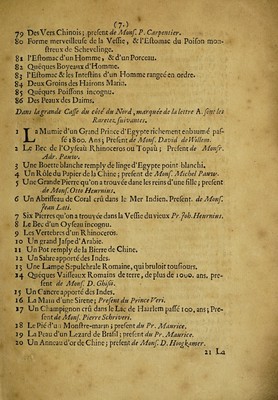 (7.)
79 Des Vers Chinois; present de Monsr. P. Carpentier.
80 Forme merveilleuse de la Vessie, & l'Estomac du Poison mon-
streux de Schevelinge.
81 l'Estomac d'un Homme, & d'un Porceau.
82 Queques Boyeaux d'Homme.
83 l'Estomac & les Intestins d'un Homme rangeé en ordre.
84 Deux Groins des Hairons Matin.
85 Quéqurs Poissons inconnu.
86 Des Peaux des Daims,
Dans la grande Casse du côté du Nord, marquée de la lettre A. sont les
Raretez suivantes.
1 La Mumie d'un Grand Prince d'Egypte richement enbaumé pas-
sé 1800. Ans; Present de Monsr. David de Willem.
2 Le Bec de l'Oyseau Rhinoceros ou Topaü; Present de Monsr.
Adr. Pauw.
3 Une Boette blanche remply de linge d'Egypte point blanchi.
4 Un Rôle du Papier de la Chine; present de Monsr. Michel Pauw.
5 Une Grande Pierre qu'on a trouvée dans les reins d'une fille; present
de Monsr. Otto Heurnius.
6 Un Abriseau de Coral crû dans le Mer Indien. Present. de Monsr.
Jean Lati.
7 Six Pierres qu'on a trouvée dans la Vessie du vieux Pr. Joh. Heurnius.
8 Le Bec d'un Oyseau incognu.
9 Les Vertebres d'un Rhinoceros.
10 Un grand Jaspe d'Arabie.
11 Un Pot remply de la Bierre de Chine.
12 Un Sabre apporté des Indes.
13 Une Lampe Sepulchrale Romaine, qui bruloit tousiours.
14 Queques Vaisseaux Romains de terre, de plus de 1000. ans, pre-
sent de Monsr. D. Ghise.
15 Un Cancre apporté des Indes.
16 La Main d'une Sirene; Present du Prince Veri.
17 Un Champignon crû dans le Lac de Haarlem passé 100, ans; Pre-
sent de Monsr. Pierre Schriveri.
18 Le Pié d'un Monstre-marin; present du Pr. Maurice.
19 La Peau d'un Lezard de Brasil; present du Pr. Maurice.
20 Un Anneau d'or de Chine; present de Monsr. D. Hoogkamer.
21 La